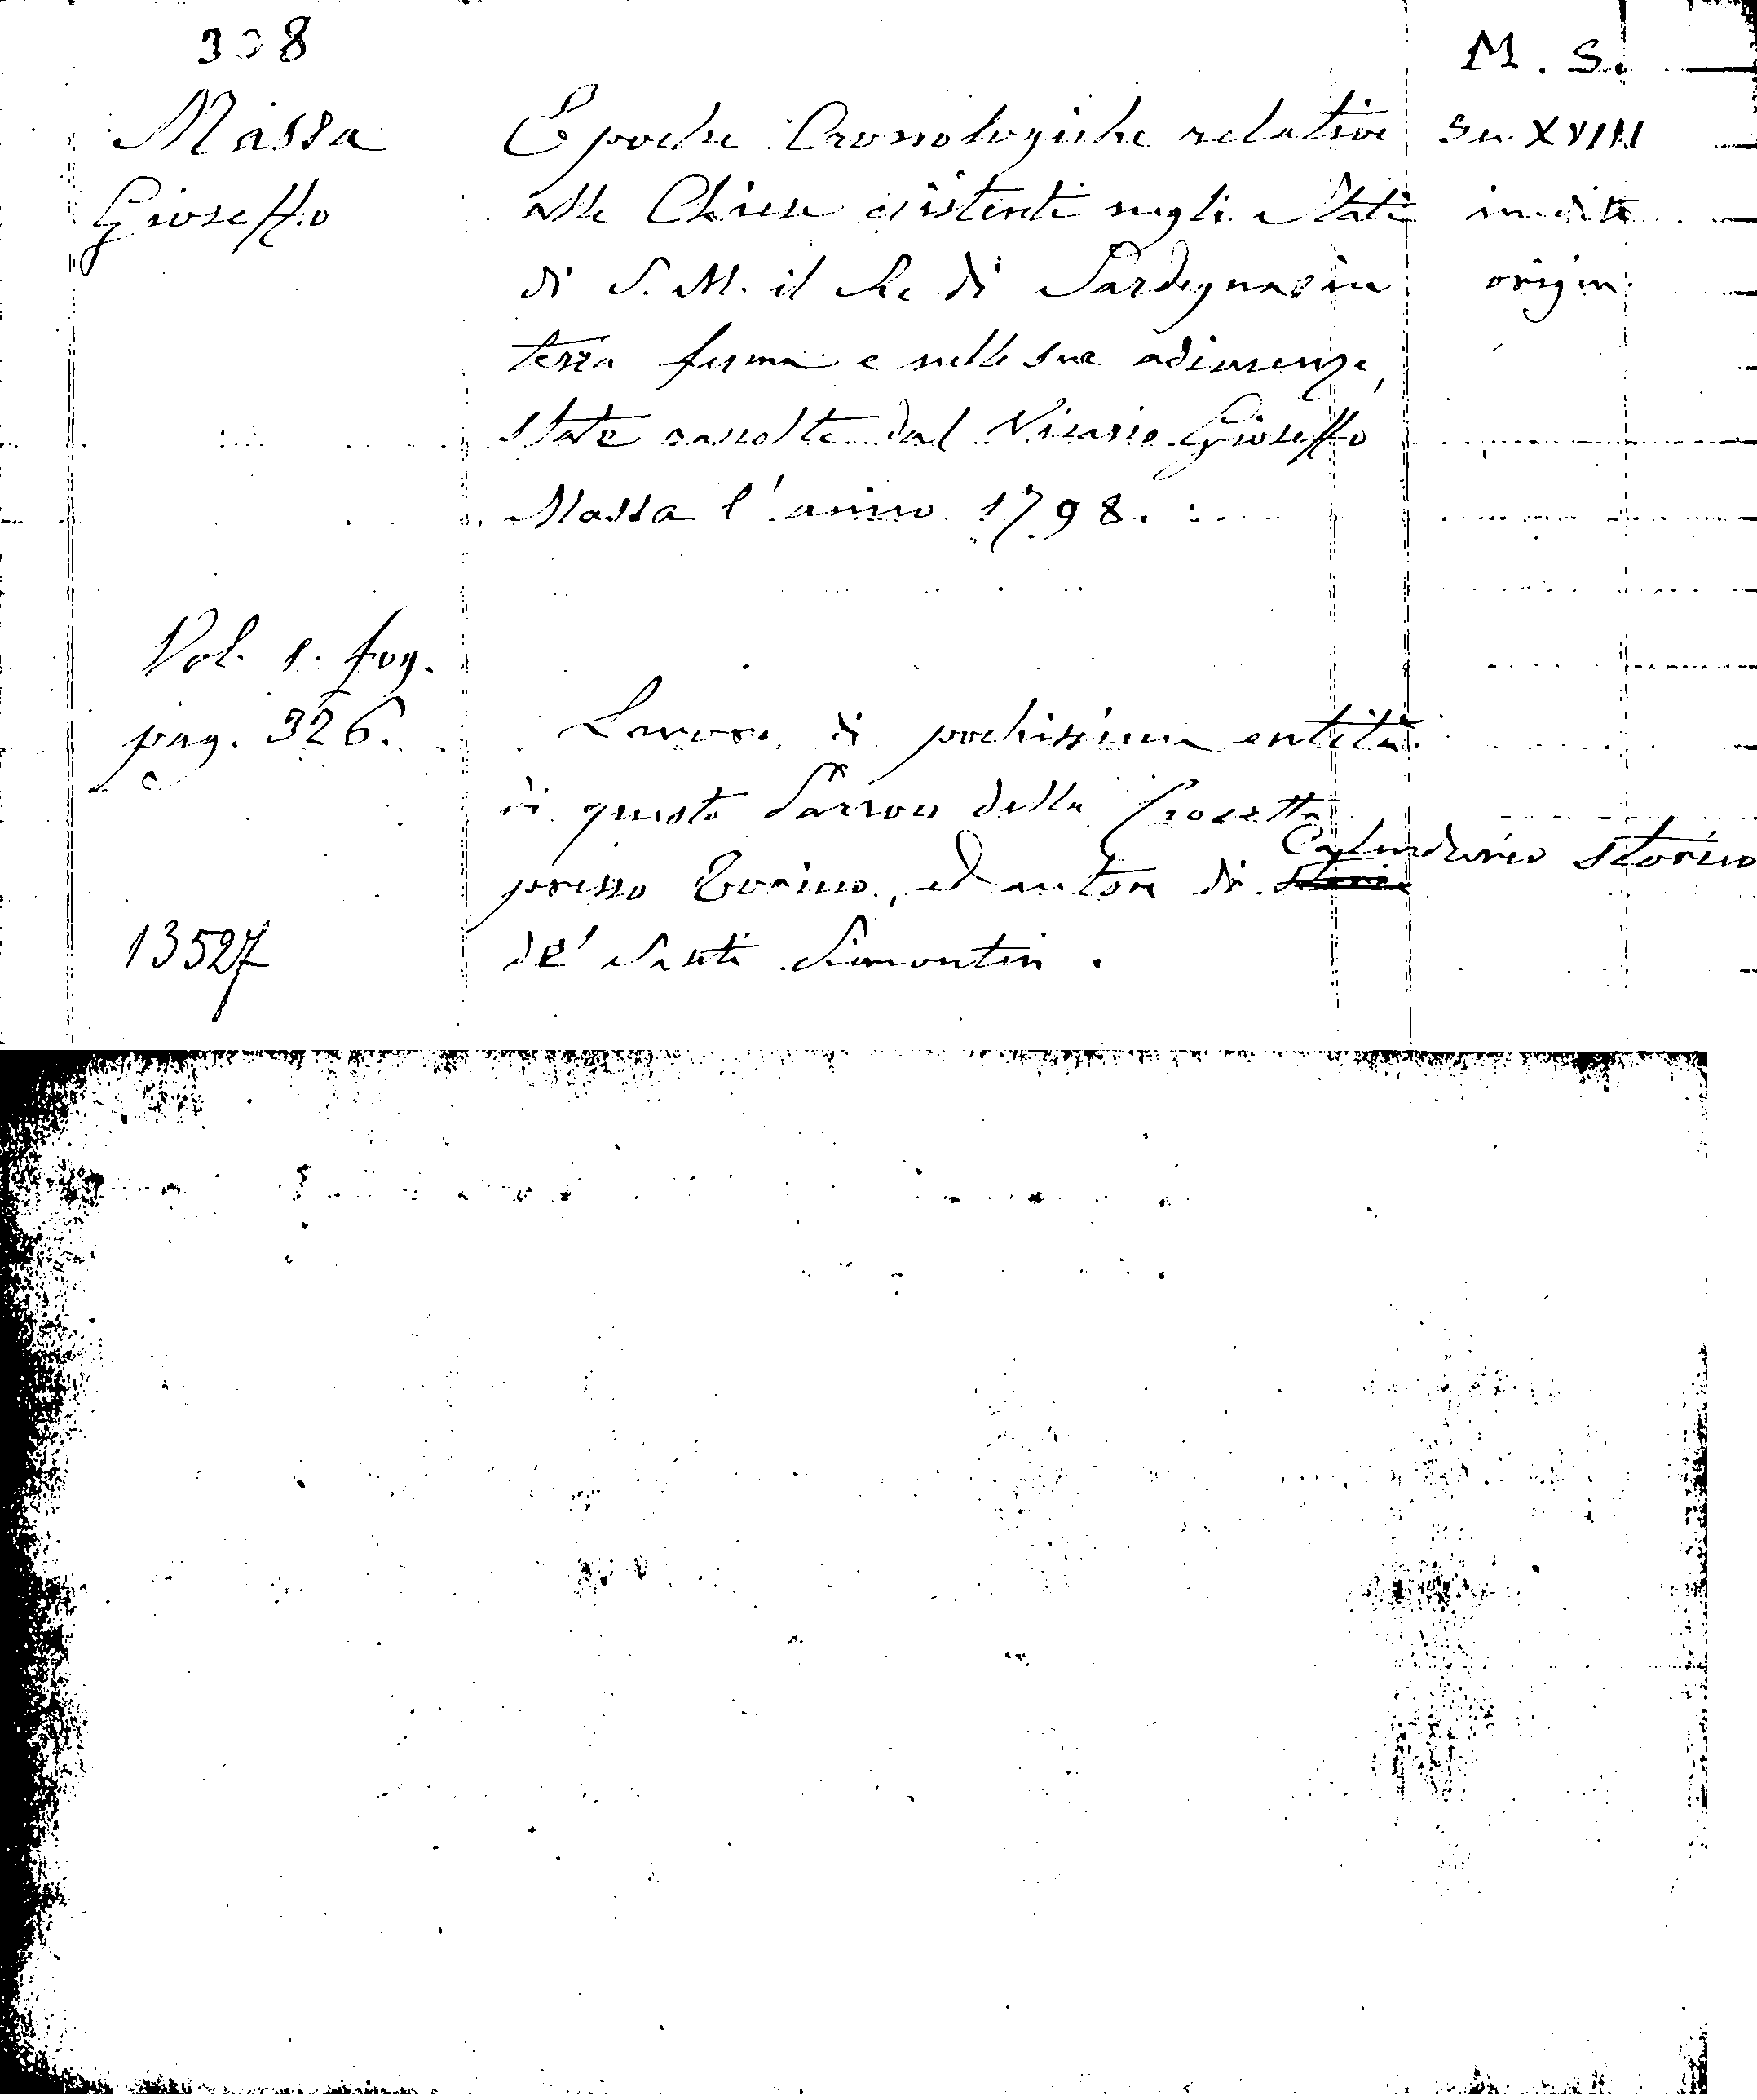 308
M. S.
Massa
Gioseffo
Epoche Cronologiche relative
alle Chiese esistenti negli Stati
di S. M. il Re di Sardegna in
terra ferma e nelle sue adiacenze,
state raccolte dal Vicario Gioseffo
Massa l'anno 1798.
Sec. XVIII
inedito
origin.
Vol. 1. fog.
pag. 326.
Lavoro di pochissima entità
di questo Parroco della Crocetta
presso Torino, ed autore di Calendario storico
de' Santi Piemontesi.
13527